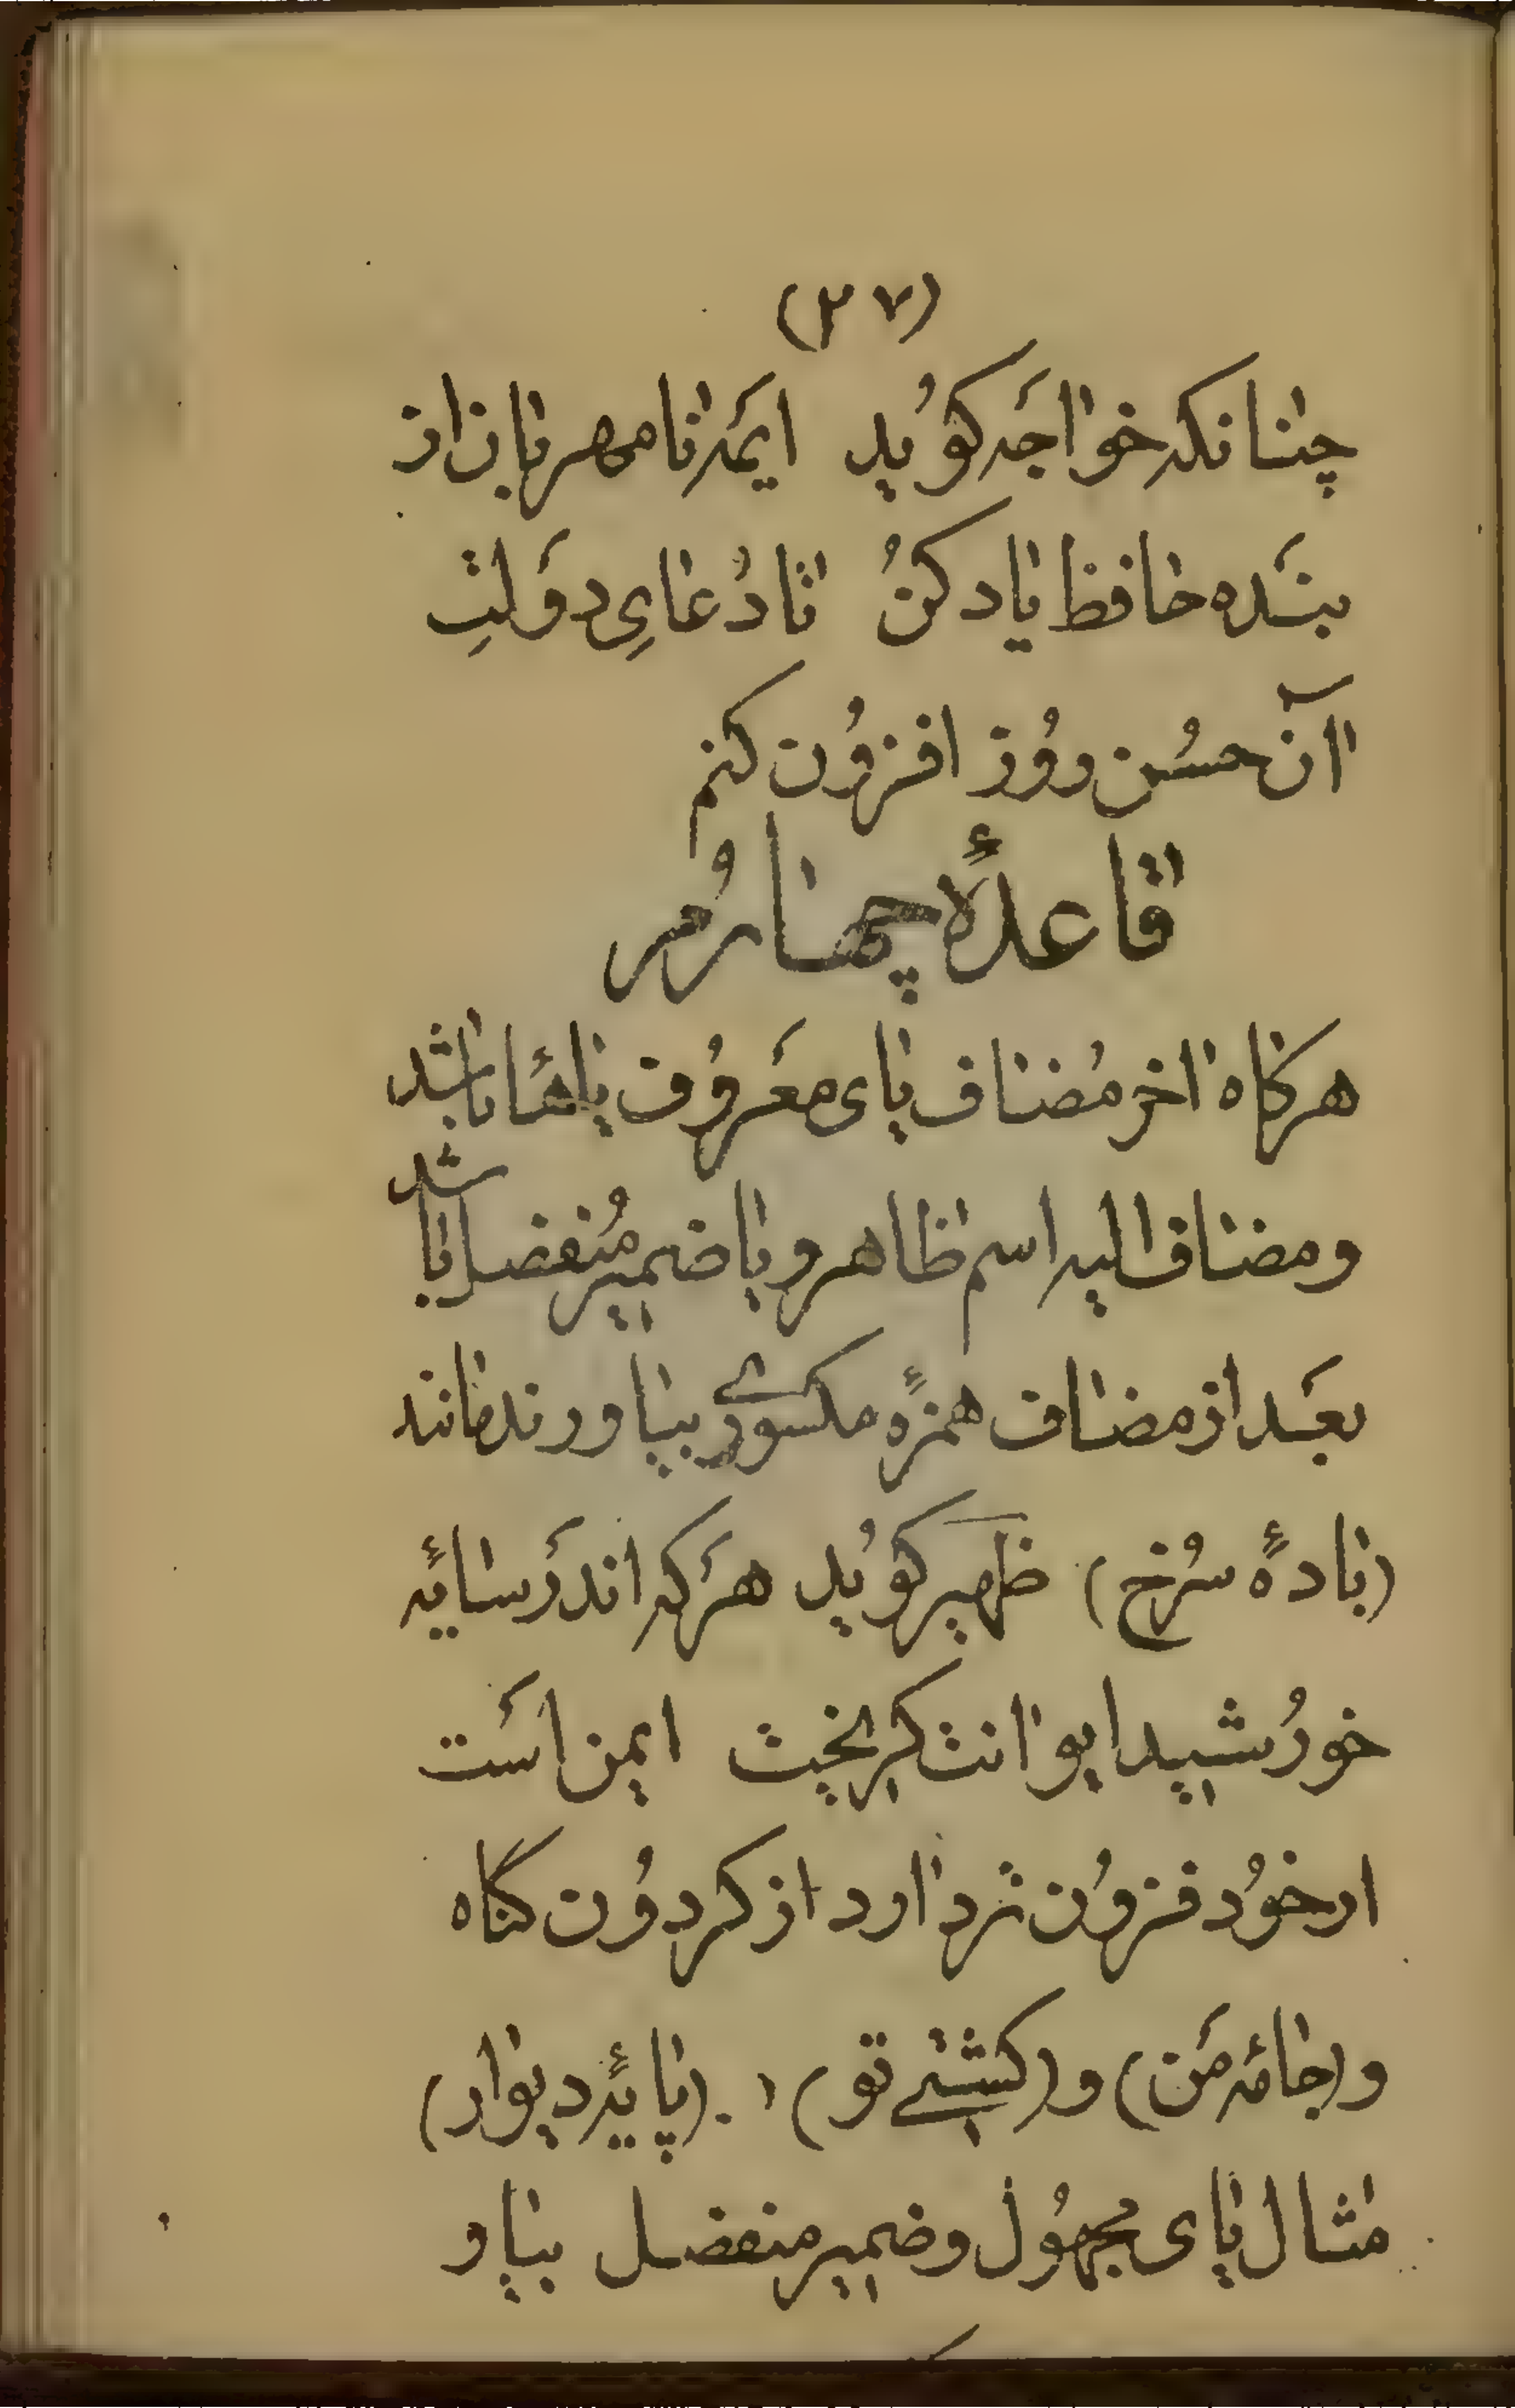 (۲۷)
چنانکه خواجَه کوُید ایمَه نا مهربان از
بنَده حافظ یاد کنُ تا دُعایِ دوَلتِ
آن حسُن روُز افزوُن کنم
قاعدهٔ چهارُم
هرکاه اخر مُضاف یای معَروُف یا ها باشد
و مضاف الیه اسم ظاهر و یا ضمیر مُنفصل باشد
بعَد از مضاف همزهٔ مکسورے بیاورند مانند
(بادهٔ سُرخ) ظهیر کوُید هرَکه اندرَ سائه
خورُشید ایوانت کریخت ایمن اسَت
ار خوُد فزوُن تر دارد از کردوُن گناه
و (جامۀ مَن) و (کشتےِ تو) . (پایۀ دیوار)
مثال یای مجهوُل و ضمیر منفصل بیاو